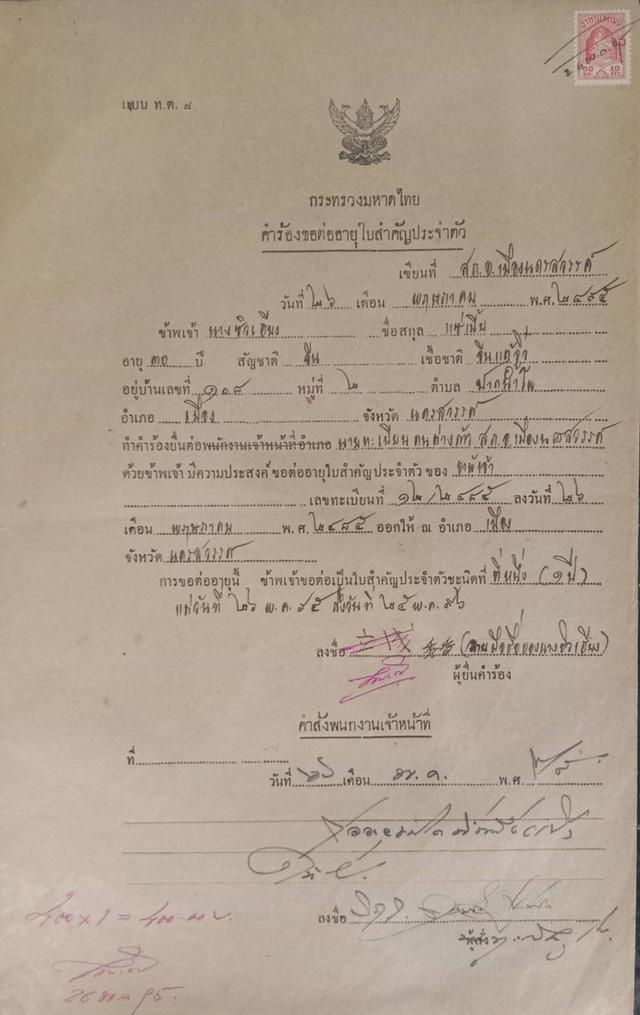 อากรแสตมป์
๑๐ 10
แบบ ท.ต. ๗
กระทรวงมหาดไทย
คำร้องขอต่ออายุใบสำคัญประจำตัว
เขียนที่ ส.ภ.อ.เมืองนครสวรรค์
วันที่ ๒๖ เดือน พฤษภาคม พ.ศ. ๒๔๙๕
ข้าพเจ้า นางซิวเฮียง ชื่อสกุล แซ่เบ๊
อายุ ๓๐ ปี สัญชาติ จีน เชื้อชาติ จีนแต้จิ๋ว
อยู่บ้านเลขที่ ๑๐๘ หมู่ที่ ๒ ตำบล ปากน้ำโพ
อำเภอ เมือง จังหวัด นครสวรรค์
ทำคำร้องยื่นต่อพนักงานเจ้าหน้าที่อำเภอ นายทะเบียนคนต่างด้าว ส.ภ.อ.เมืองนครสวรรค์
ด้วยข้าพเจ้า มีความประสงค์ ขอต่ออายุใบสำคัญประจำตัว ของ ข้าพเจ้า
เลขทะเบียนที่ ๑๒/๒๔๘๕ ลงวันที่ ๒๖
เดือน พฤษภาคม พ.ศ. ๒๔๘๕ ออกให้ ณ อำเภอ เมือง
จังหวัด นครสวรรค์
การขอต่ออายุนี้ ข้าพเจ้าขอต่อเป็นใบสำคัญประจำตัวชะนิดที่ ที่หนึ่ง (๑ ปี)
แต่วันที่ ๒๖ พ.ค. ๙๕ ถึงวันที่ ๒๕ พ.ค. ๙๖
ลงชื่อ (ลายมือชื่อของนางซิวเฮียง)
ผู้ยื่นคำร้อง
คำสั่งพนกงานเจ้าหน้าที่
ที่
วันที่ ๒๖ เดือน พ.ค. พ.ศ. ๒๔๙๕
400 x 1 = 400.00 บ.
ลงชื่อ
26 พ.ค. 95